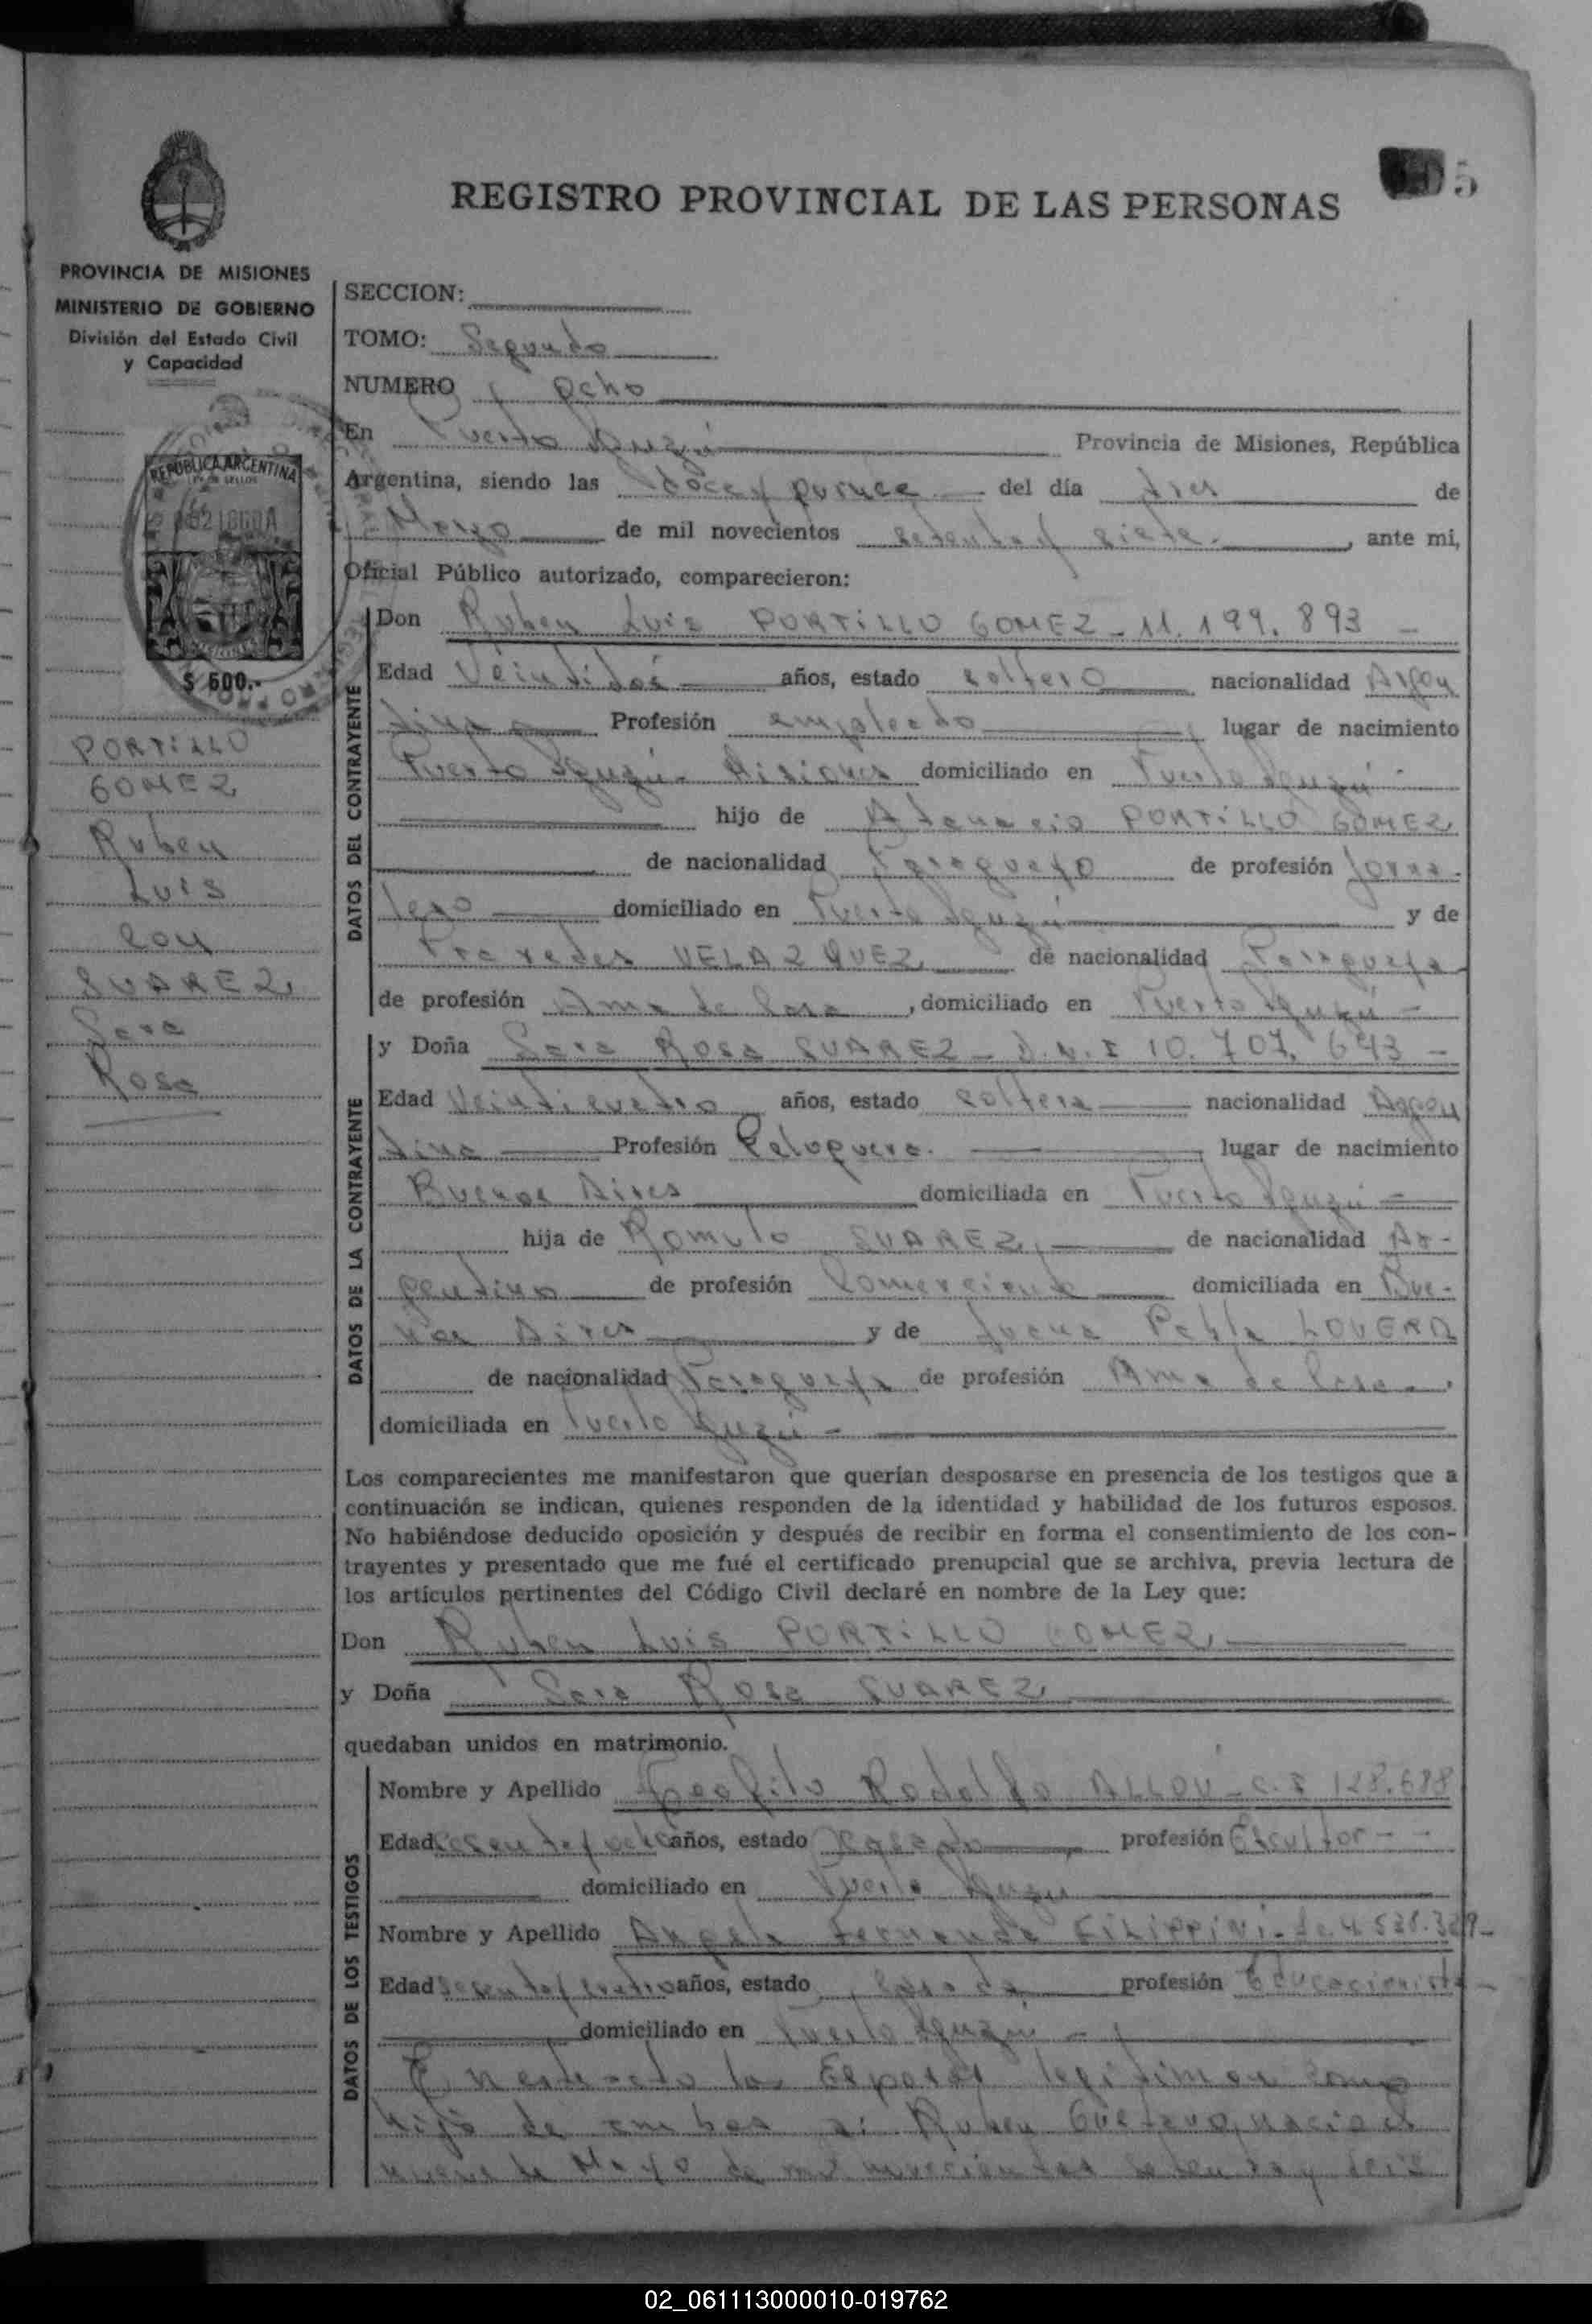 5
REGISTRO PROVINCIAL DE LAS PERSONAS
PROVINCIA DE MISIONES
MINISTERIO DE GOBIERNO
División del Estado Civil
y Capacidad
REPUBLICA ARGENTINA
$ 600.-
PORTILLO
GOMEZ
Ruben
Luis
con
SUAREZ
Sara
Rosa
SECCION:
TOMO: Segundo
NUMERO ocho
En Puerto Iguazú Provincia de Misiones, República
Argentina, siendo las doce y quince del día tres de
Mayo de mil novecientos setenta y siete. , ante mi,
Oficial Público autorizado, comparecieron:
DATOS DEL CONTRAYENTE
Don Ruben Luis PORTILLO GOMEZ - 11.199.893 -
Edad Veintidos años, estado soltero nacionalidad Argen
tino Profesión empleado lugar de nacimiento
Puerto Iguazú - Misiones domiciliado en Puerto Iguazú -
hijo de Atanacio PORTILLO GOMEZ
de nacionalidad Paraguayo de profesión Jorna-
lero domiciliado en Puerto Iguazú y de
Praxedes VELAZQUEZ de nacionalidad Paraguaya
de profesión Ama de Casa , domiciliado en Puerto Iguazú -
DATOS DE LA CONTRAYENTE
y Doña Sara Rosa SUAREZ - D.N.I 10.707.643 -
Edad Veinticuatro años, estado soltera nacionalidad Argen
tina Profesión Peluquera. lugar de nacimiento
Buenos Aires domiciliada en Puerto Iguazú -
hija de Romulo SUAREZ, de nacionalidad Ar-
gentino de profesión Comerciante domiciliada en Bue-
nos Aires y de Juana Pabla LOVERA
de nacionalidad Paraguaya de profesión Ama de Casa -,
domiciliada en Puerto Iguazú -
Los comparecientes me manifestaron que querían desposarse en presencia de los testigos que a
continuación se indican, quienes responden de la identidad y habilidad de los futuros esposos.
No habiéndose deducido oposición y después de recibir en forma el consentimiento de los con-
trayentes y presentado que me fué el certificado prenupcial que se archiva, previa lectura de
los artículos pertinentes del Código Civil declaré en nombre de la Ley que:
Don Ruben Luis PORTILLO GOMEZ,
y Doña Sara Rosa SUAREZ
quedaban unidos en matrimonio.
DATOS DE LOS TESTIGOS
Nombre y Apellido Teofilo Rodolfo ALLOU - C.I 128.688
Edad sesenta y ocho años, estado casado profesión Escultor - -
domiciliado en Puerto Iguazú
Nombre y Apellido Angela Fernanda FILIPPINI -
Edad sesenta y cuatro años, estado casada profesión Educacionista -
domiciliado en Puerto Iguazú -
En este acto los Esposos legitiman como
hijo de ambos a: Ruben Gustavo, nacio el
nueve de Mayo de mil novecientos setenta y seis
02_061113000010-019762